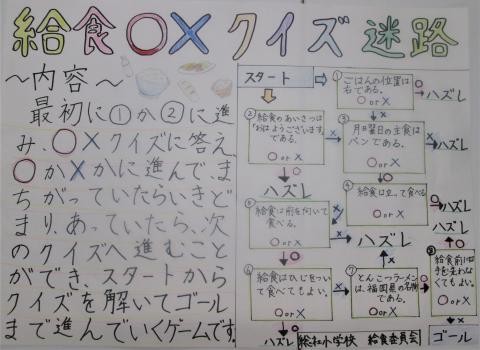 給食〇×クイズ 迷路
～内容～
最初に①か②に進
み、〇×クイズに答え、
〇か×かに進んで、ま
ちがっていたらいきど
まり、あっていたら、次
のクイズへ進むこと
ができ、スタートから
クイズを解いてゴール
まで進んでいくゲームです。
スタート
①
ごはんの位置は
右である。
〇 or ×
〇
ハズレ
×
②
給食のあいさつは
「おはようございます」
である。
〇 or ×
×
〇
ハズレ
③
月曜日の主食は
パンである。
〇 or ×
×
ハズレ
〇
④
給食は立って食べる
〇 or ×
〇
ハズレ
×
⑤
給食は前を向いて
食べる。
〇 or ×
×
ハズレ
〇
⑥
給食はひじをついて
食べてもよい。
〇 or ×
×
〇
ハズレ
⑦
とんこつラーメン
は、福岡県の名物
である。
〇 or ×
×
〇
⑧
給食前は
手を洗わな
くてもよい。
〇 or ×
〇
ハズレ
×
ゴール
総社小学校 給食委員会